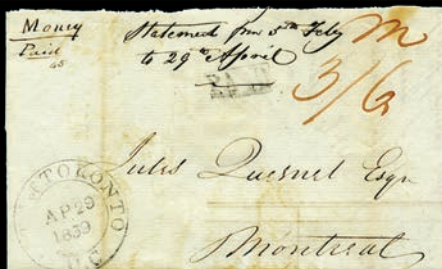 Money
Paid
Statement from 5th Feby
to 29th April
PAID
M
3/6
Jules Quesnel Esqr
Montreal
TORONTO
AP 29
1839
U.C